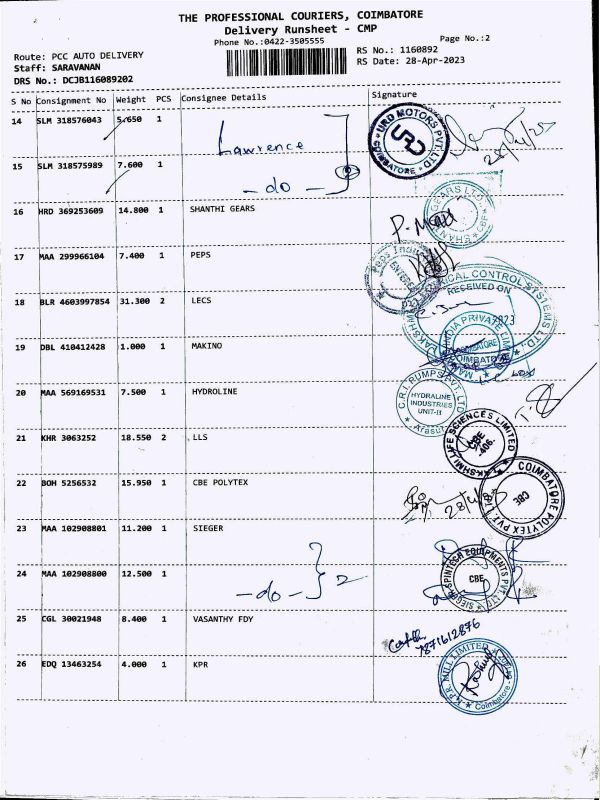 THE PROFESSIONAL COURIERS, COIMBATORE
Delivery Runsheet - CMP
Phone No.:0422-3505555 Page No.:2
Route: PCC AUTO DELIVERY RS No.: 1160892
Staff: SARAVANAN RS Date: 28-Apr-2023
DRS No.: DCJB116089202
S No Consignment No Weight PCS Consignee Details Signature
14 SLM 318576043 5.650 1 Lawrence URD MOTORS PVT. LTD. COIMBATORE URD
15 SLM 318575989 7.600 1 - do -
16 HRD 369253609 14.800 1 SHANTHI GEARS
17 MAA 299966104 7.400 1 PEPS
18 BLR 4603997854 31.300 2 LECS RECEIVED ON
19 DBL 410412428 1.000 1 MAKINO
20 MAA 569169531 7.500 1 HYDROLINE C.R.I. PUMPS PVT. LTD. HYDRALINE INDUSTRIES UNIT-II
21 KHR 3063252 18.550 2 LLS LAKSHMI LIFE SCIENCES LIMITED CBE -406.
22 BOH 5256532 15.950 1 CBE POLYTEX COIMBATORE POLYTEX PVT. LTD. CBE
23 MAA 102908801 11.200 1 SIEGER
24 MAA 102908800 12.500 1 - do - 2 SIEGER SPINTECH EQUIPMENTS PVT. LTD. CBE
25 CGL 30021948 8.400 1 VASANTHY FDY 7871612876
26 EDQ 13463254 4.000 1 KPR K.P.R. MILL LIMITED Coimbatore